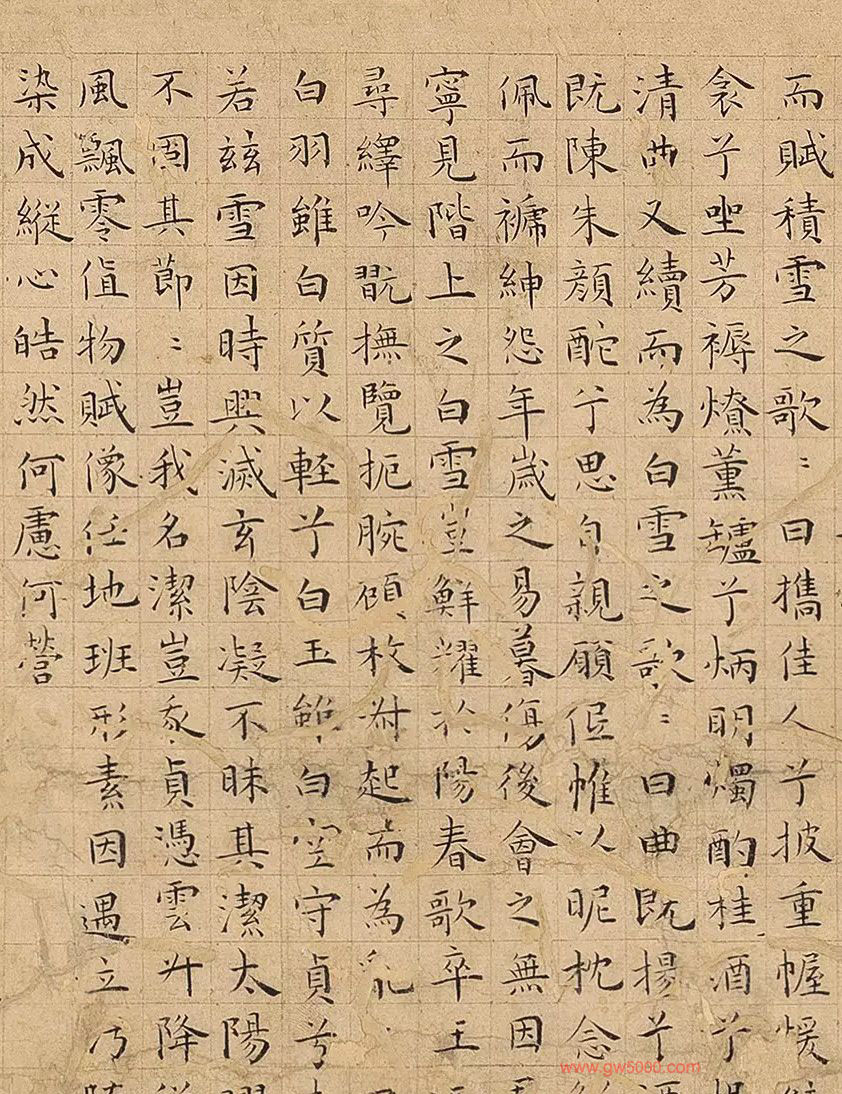 而賦積雪之歌〻曰攜佳人兮披重幄煖
衾兮坐芳褥燎薰鑪兮炳明燭酌桂酒兮
清曲又續而為白雪之歌〻曰曲既揚兮酒
既陳朱顏酡兮思自親願低帷以昵枕念
佩而褫紳怨年歲之易暮傷後會之無因
寧見階上之白雪豈鮮耀於陽春歌卒王
尋繹吟翫撫覽扼腕顧枚叔起而為亂
白羽雖白質以輕兮白玉雖白空守貞兮
若茲雪因時興滅玄陰凝不昧其潔太陽
不固其節〻豈我名潔豈我貞憑雲升降
風飄零值物賦像任地班形素因遇立污
染成縱心皓然何慮何營
www.gw5000.com